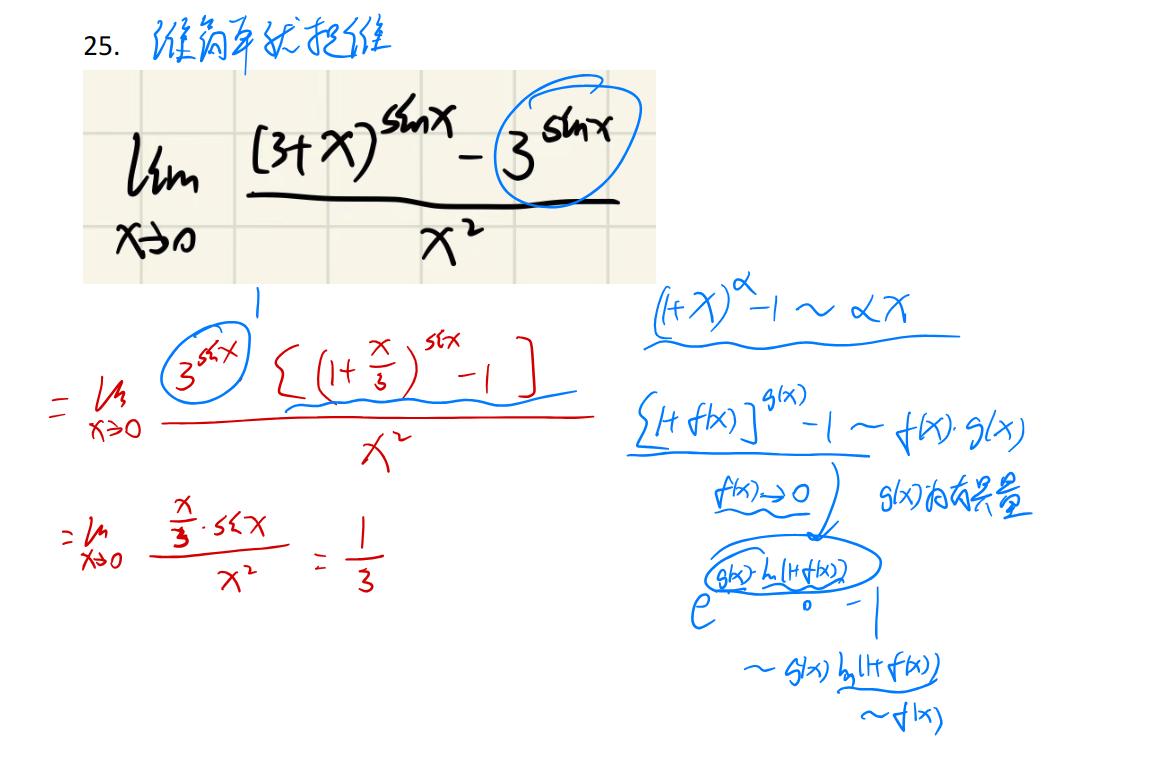 25. 谁简单就提谁
lim x→0 ((3+x)^sinx - 3^sinx) / x²
= lim x→0 3^sinx [(1+x/3)^sinx - 1] / x²
1
= lim x→0 (x/3 · sinx) / x² = 1/3
(1+x)^α - 1 ~ αx
[1+f(x)]^g(x) - 1 ~ f(x)·g(x)
f(x)→0 g(x)为有界量
e^(g(x)·ln(1+f(x))) - 1
0
~ g(x) ln(1+f(x))
~ f(x)